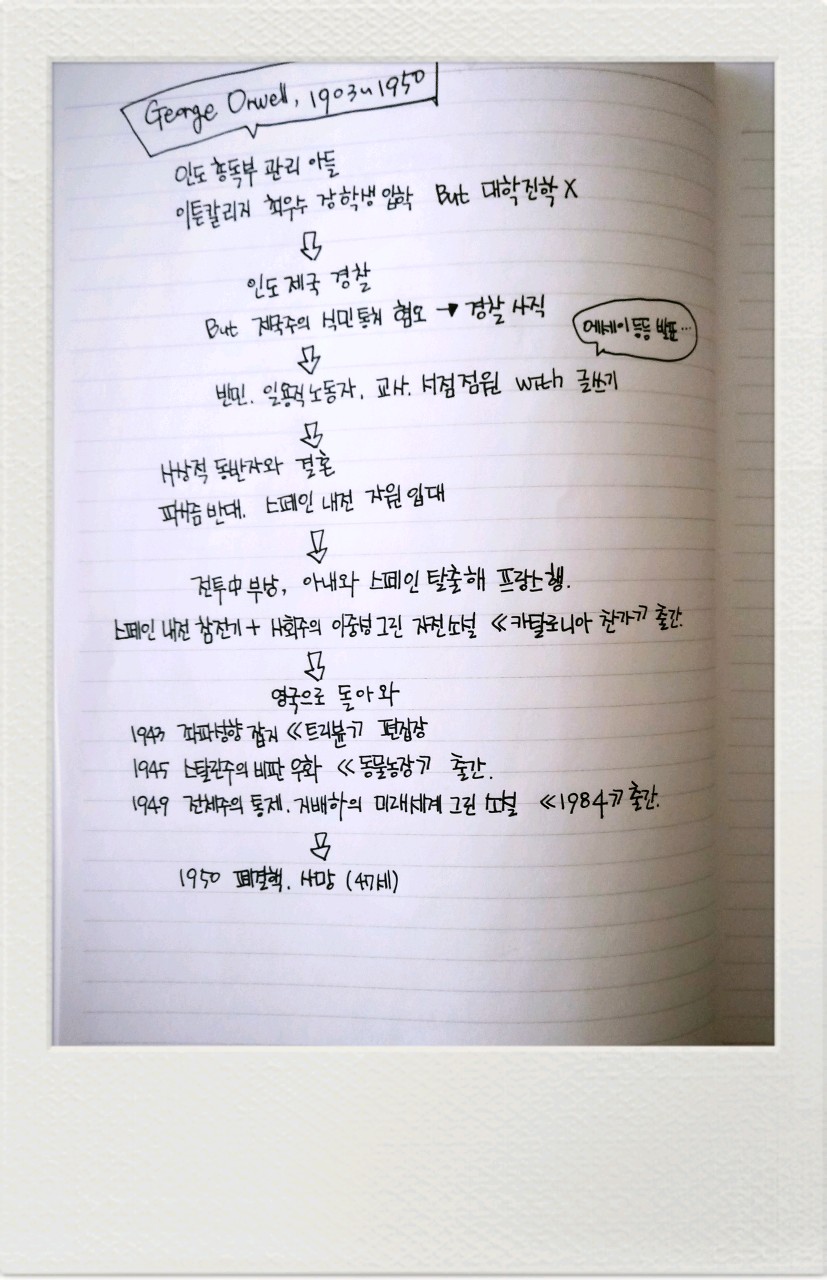 George Orwell, 1903~1950
인도 총독부 관리 아들
이튼칼리지 최우수 장학생 입학 But 대학진학 X
⇩
인도 제국 경찰
But 제국주의 식민통치 혐오 → 경찰 사직
에세이 등등 발표...
⇩
빈민. 일용직노동자. 교사. 서점점원 with 글쓰기
⇩
사상적 동반자와 결혼
파시즘 반대. 스페인 내전 자원 입대
⇩
전투中 부상, 아내와 스페인 탈출해 프랑스행.
스페인 내전 참전기 + 사회주의 이중성 그린 자전소설 ≪카탈로니아 찬가≫ 출간.
⇩
영국으로 돌아와
1943 좌파성향 잡지 ≪트리뷴≫ 편집장
1945 스탈린주의 비판 우화 ≪동물농장≫ 출간.
1949 전체주의 통제. 지배하의 미래세계 그린 소설 ≪1984≫ 출간.
⇩
1950 폐결핵. 사망 (47세)